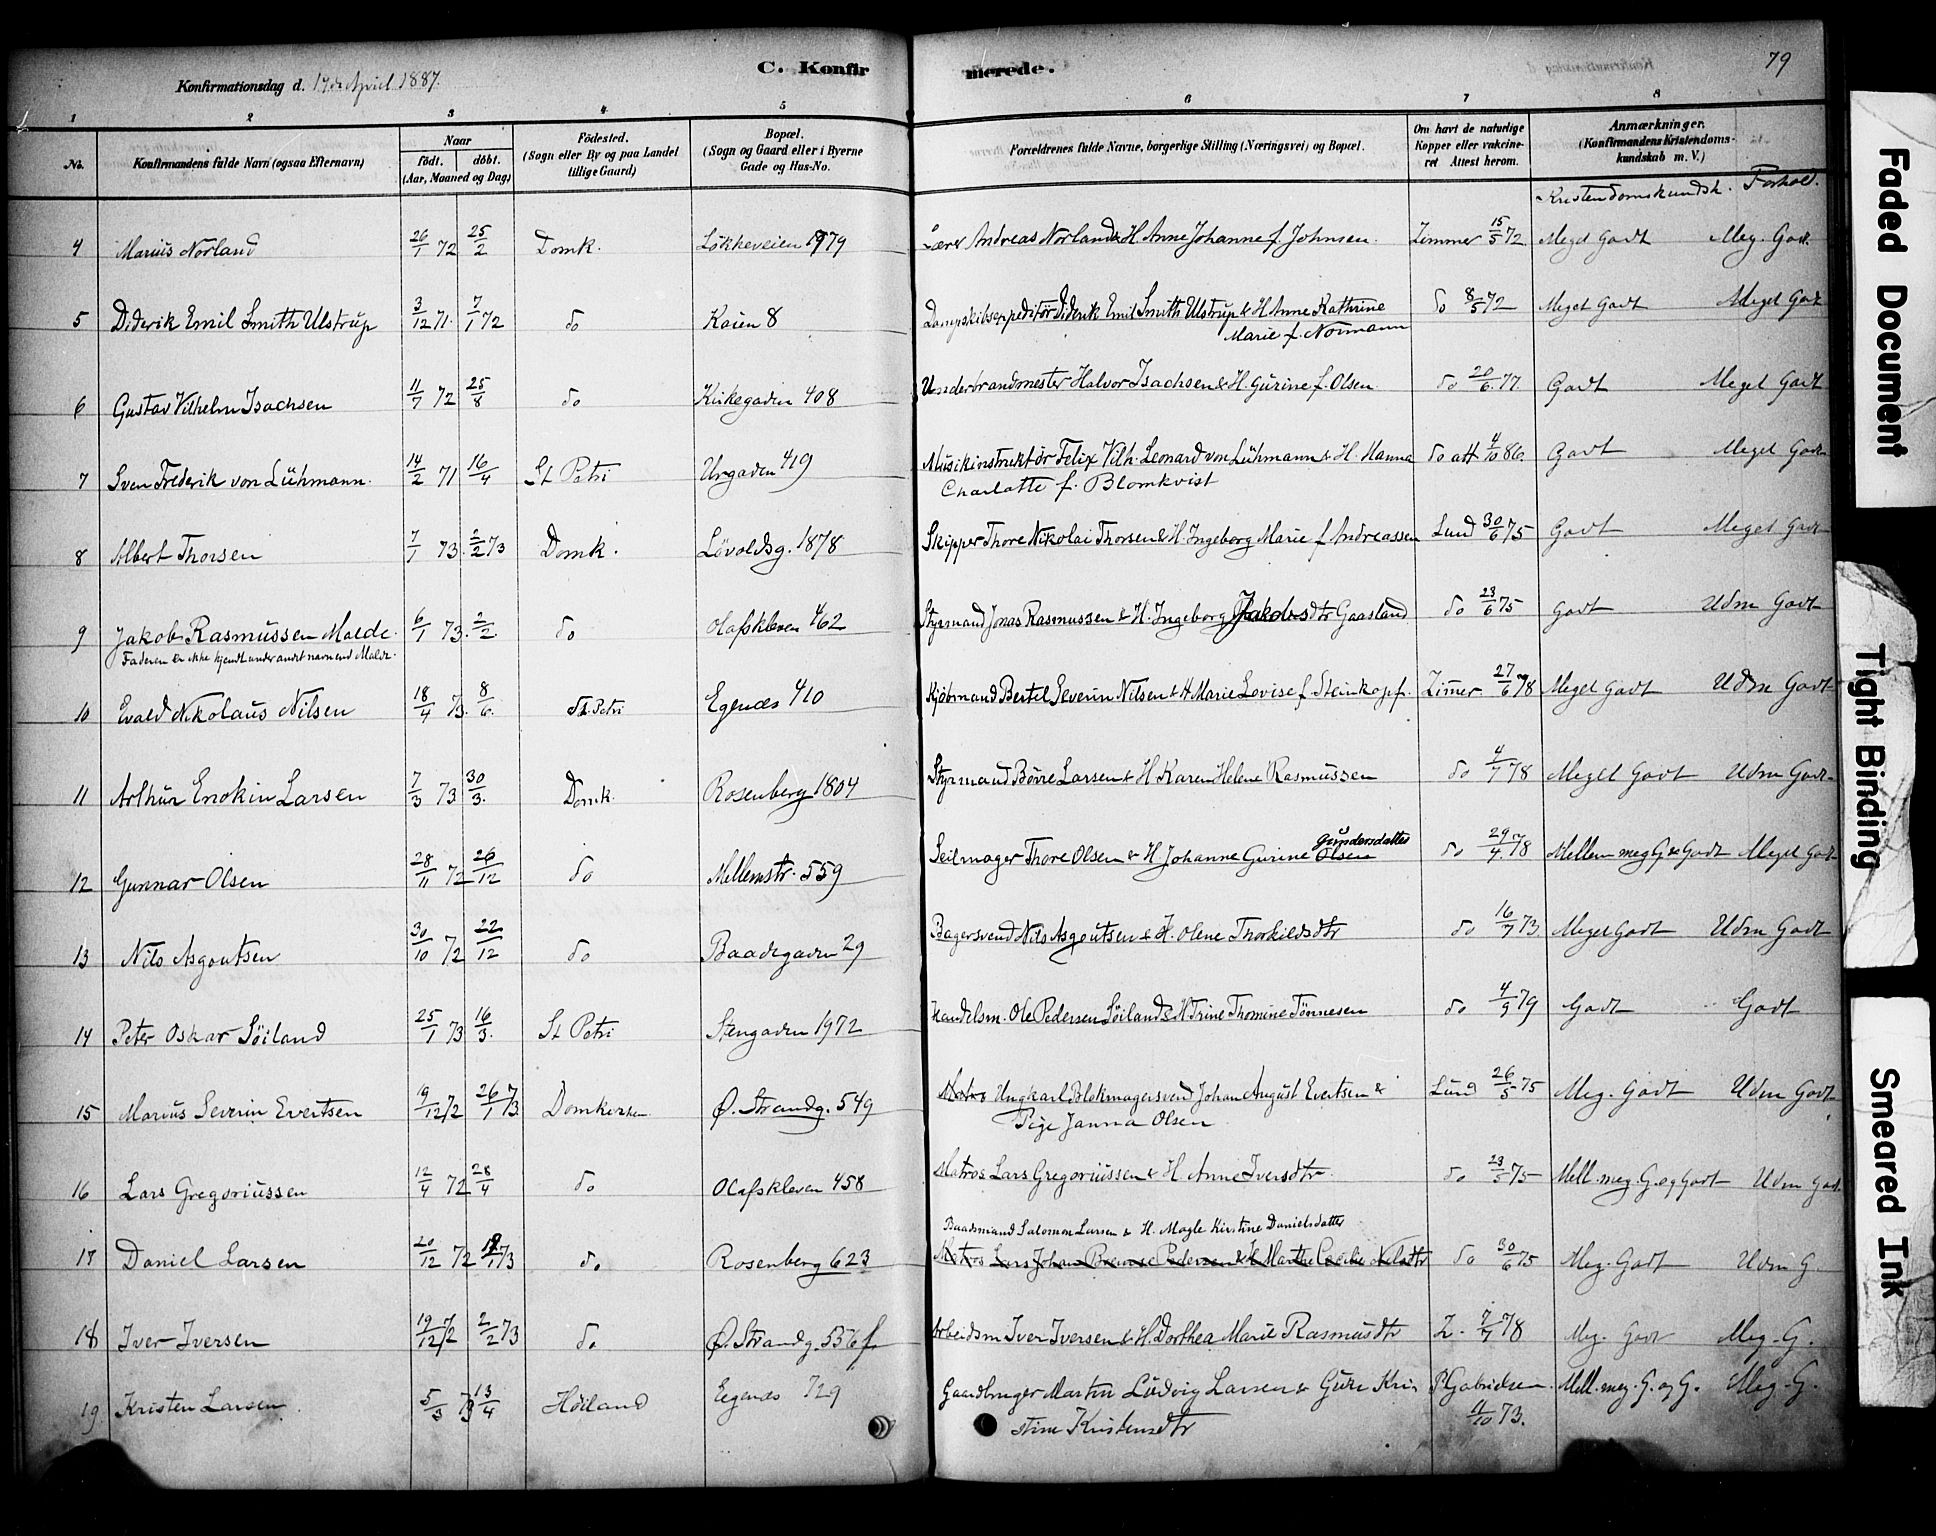 79
C. Konfirmerede.
Konfirmationsdag d. 17de April 1887.
1 2 3 4 5 6 7 8
No. Konfirmandens fulde Navn (ogsaa Efternavn) Naar födt. döbt. (Aar, Maaned og Dag) Födested. (Sogn eller By og paa Landet tillige Gaard) Bopæl. (Sogn og Gaard eller i Byerne Gade og Hus-No. Forældrenes fulde Navne, borgerlige Stilling (Næringsvei) og Bopæl. Om havt de naturlige Kopper eller vakcineret Attest herom. Anmærkninger. (Konfirmandens Kristendomskundskab m. V.)
Kristendomskundsk. Forhold.
4 Marius Norland 26/1 72 25/2 Domk. Løkkeveien 1979 Lærer Andreas Norland & H. Anne Johanne f. Johnsen. Zimmer 15/5 72 Meget Godt Meg. Godt.
5 Diderik Emil Smith Ulstrup 3/12 71. 7/1 72 do Kaien 8 Dampskibsexpeditör Diderik Emil Smith Ulstrup & H Anne Kathrine do 8/5 72 Meget Godt Meget Godt
Marie f. Normann
6 Gustav Vilhelm Isachsen 11/7 72 25/8 do Kirkegaden 408 Underbrandmester Halvor Isachsen & H. Gurine f. Olsen do 20/6 77 Godt Meget Godt
7 Sven Frederik von Lühmann. 14/2 71 16/4 St Petri Urgaden 419 Musikinstruktör Felix Vilh. Leonard von Lühmann & H. Hanna do att 4/10 86. Godt Meget Godt
Charlotte f. Blomkvist
8 Albert Thorsen 7/1 73. 2/2 73 Domk. Løvoldsg. 1878 Skipper Thore Nikolai Thorsen & H. Ingeborg Marie f Andreassen Lund 30/6 75 Godt Meget Godt
9 Jakob Rasmussen Malde. 6/1 73. 2/2 do Olafskleven 462 Styrmand Jonas Rasmussen & H. Ingeborg Jakobsdtr Gaasland do 23/6 75 Godt Udm Godt
Faderen er ikke kjendt under andet navn end Malde.
10 Evald Nikolaus Nilsen 18/4 73. 8/6. St. Petri Egenæs 410 Kjöbmand Bertel Severin Nilsen & H Marie Lovise f Steinkopf. Zimer 27/6 78 Meget Godt Udm Godt
11 Arthur Enokin Larsen 7/3 73 30/3. Domk. Rosenberg 1804 Styrmand Börre Larsen & H Karen Helene Rasmussen do 4/7 78 Meget Godt Udm Godt
12 Gunnar Olsen 28/11 72 26/12 do Mellemstr. 559 Seilmager Thore Olsen & H Johanne Gurine Olsen Gundersdatter do 29/4 78 Mellem meg G & Godt Meget Godt
13 Nils Asgoutsen 30/10 72 22/12 do Baadegaden 29 Bagersvend Nils Asgoutsen & H. Olene Thorkildsdtr do 16/7 73 Meget Godt Udm Godt
14 Peter Oskar Söiland 25/1 73 16/3. St Petri Stengaden 1972 Handelsm. Ole Pedersen Söiland & H Trine Thomine Tönnesen do 4/9 79 Godt Godt
15 Marius Severin Evertsen 19/12 72 26/1 73 Domkirken Ø. Strandg. 549 Matros Ungkarl Blokmagersvend Johan August Evertsen & Lund 26/5 75 Meg. Godt Udm Godt
Pige Janna Olsen
16 Lars Gregoriussen 12/4 72 28/4 do Olafskleven 458 Matros Lars Gregoriussen & H Anne Iversdtr do 23/5 75 Mell. meg. G. og Godt Udm God.
Baadsmand Salomon Larsen & H. Magle Kirstine Danielsdatter
17 Daniel Larsen 20/12 72 73 do Rosenberg 623 Matros Lars Johan Pedersen & H Marthe Cecilie do 30/6 75 Meg. Godt Udm G
18 Iver Iversen 19/12 72 2/2 73 do Ø. Strandg. 556 f. Arbeidsm Iver Iversen & H. Dorthea Marie Rasmusdtr Z. 7/7 78 Meg. Godt Meg. G.
19 Kristen Larsen 5/3 73 13/4 Höiland Egenæs 729 Gaardbruger Martin Ludvig Larsen & Guri Kri- P. Gabrielsen Mell. meg. G. og G. Meg. G.
stine Kristensdtr 11/10 73.
Faded Document
Tight Binding
Smeared Ink